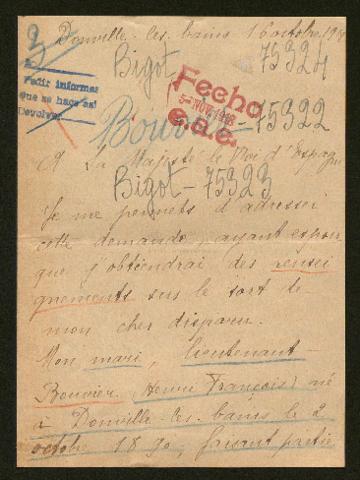 3 Donville-les-bains 16 octobre 1918
Bigot 75324
Pedir informes
que se haga así
Devolver
Fecho
5 NOV 1918
Bouvier - 75322
A Sa Majesté le Roi d'Espagne
Bigot - 75323
Je me permets d'adresser
cette demande, ayant espoir
que j'obtiendrai des rensei
gnements sur le sort de
mon cher disparu.
Mon mari, lieutenant
Bouvier (Henri François) né
à Donville-les-bains le 2
octobre 1890, faisant partie